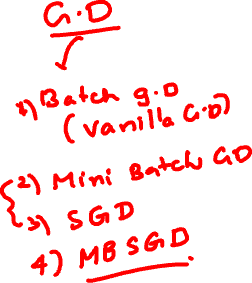 G.D
1) Batch g.D
(Vanilla G.D)
2) Mini Batch GD
3) SGD
4) MBSGD.